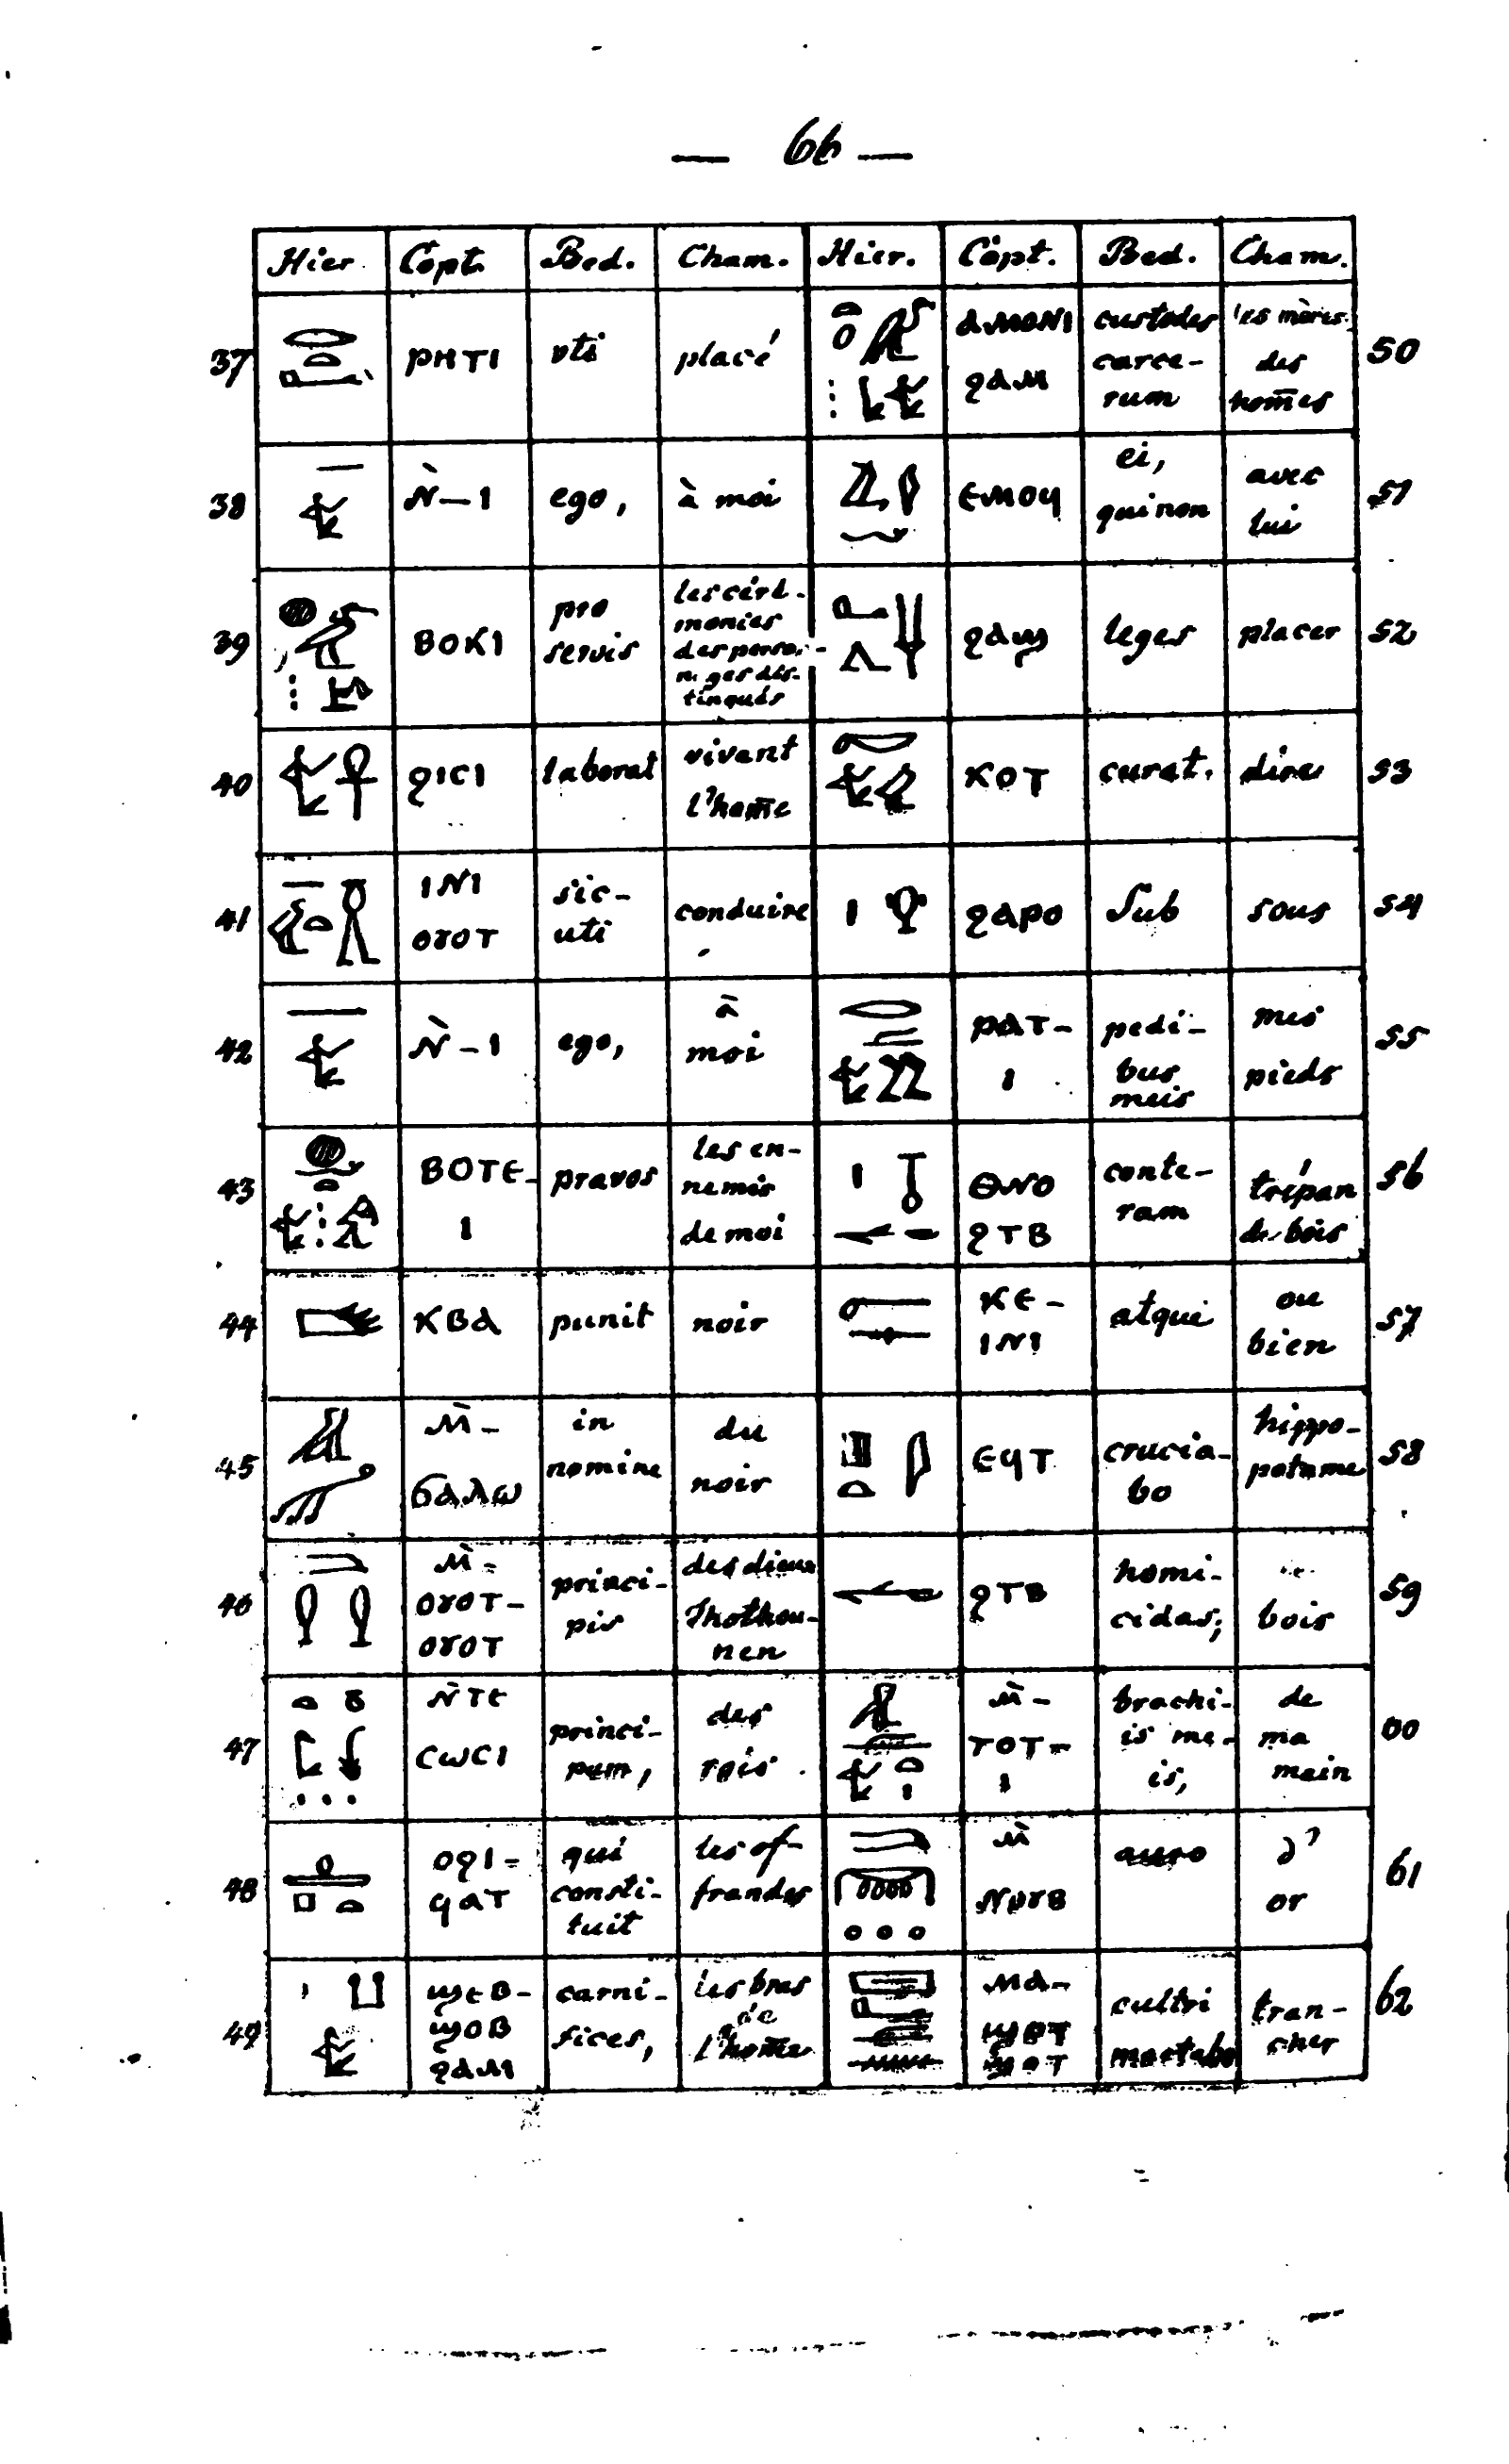 — 66 —
Hier. Copt. Bed. Cham. Hier. Copt. Bed. Cham.
37 ⲣⲏⲧⲓ uti placé
ⲁⲙⲟⲛⲓ ϩⲁⲙ custodes carce-rum les mères des hom̄es 50
38 Ⲛ̀-ⲓ ego, à moi
ⲉⲙⲟϥ ei, qui non avec lui 51
39 ⲃⲟⲕⲓ pro servis les céré-monies des person-nages dis-tingués
ϩⲁϣ leges placer 52
40 ϩⲓⲥⲓ laborat vivant l'hom̄e
ⲕⲟⲧ curat. dire 53
41 ⲓⲛⲓ ⲟⲩⲟⲧ sic-uti conduire
ϩⲁⲣⲟ Sub sous 54
42 Ⲛ̀-ⲓ ego, à moi
ⲣⲁⲧ-ⲓ pedi-bus meis mes pieds 55
43 ⲃⲟⲧⲉ-ⲓ pravos les en-nemis de moi
ⲑⲛⲟ ϩⲧⲃ conte-ram trépan de bois 56
44 ⲕⲃⲁ punit noir
ⲕⲉ-ⲓⲛⲓ atqui ou bien 57
45 ⲙ̀-ϭⲁⲗⲱ in nomine du noir
ⲉϥⲧ crucia-bo hippo-potame 58
46 ⲙ̀-ⲟⲩⲟⲧ-ⲟⲩⲟⲧ princi-pis des dieux Thothou-nen
ϩⲧⲃ homi-cidas, bois 59
47 ⲛ̀ⲧⲉ ⲥⲱⲥⲓ princi-pum, des rois
ⲙ̀-ⲧⲟⲧ-ⲓ brachi-is me-is, de ma main 60
48 ⲟϩⲓ-ϥⲁⲧ qui consti-tuit les of-frandes
ⲙ̀ ⲛⲟⲩⲃ auro d'or 61
49 ϣⲉⲃ-ϣⲟⲃ ϩⲁⲙ carni-fices, les bras de l'hom̄e
ⲙⲁ- cultri mactabo tran-cher 62